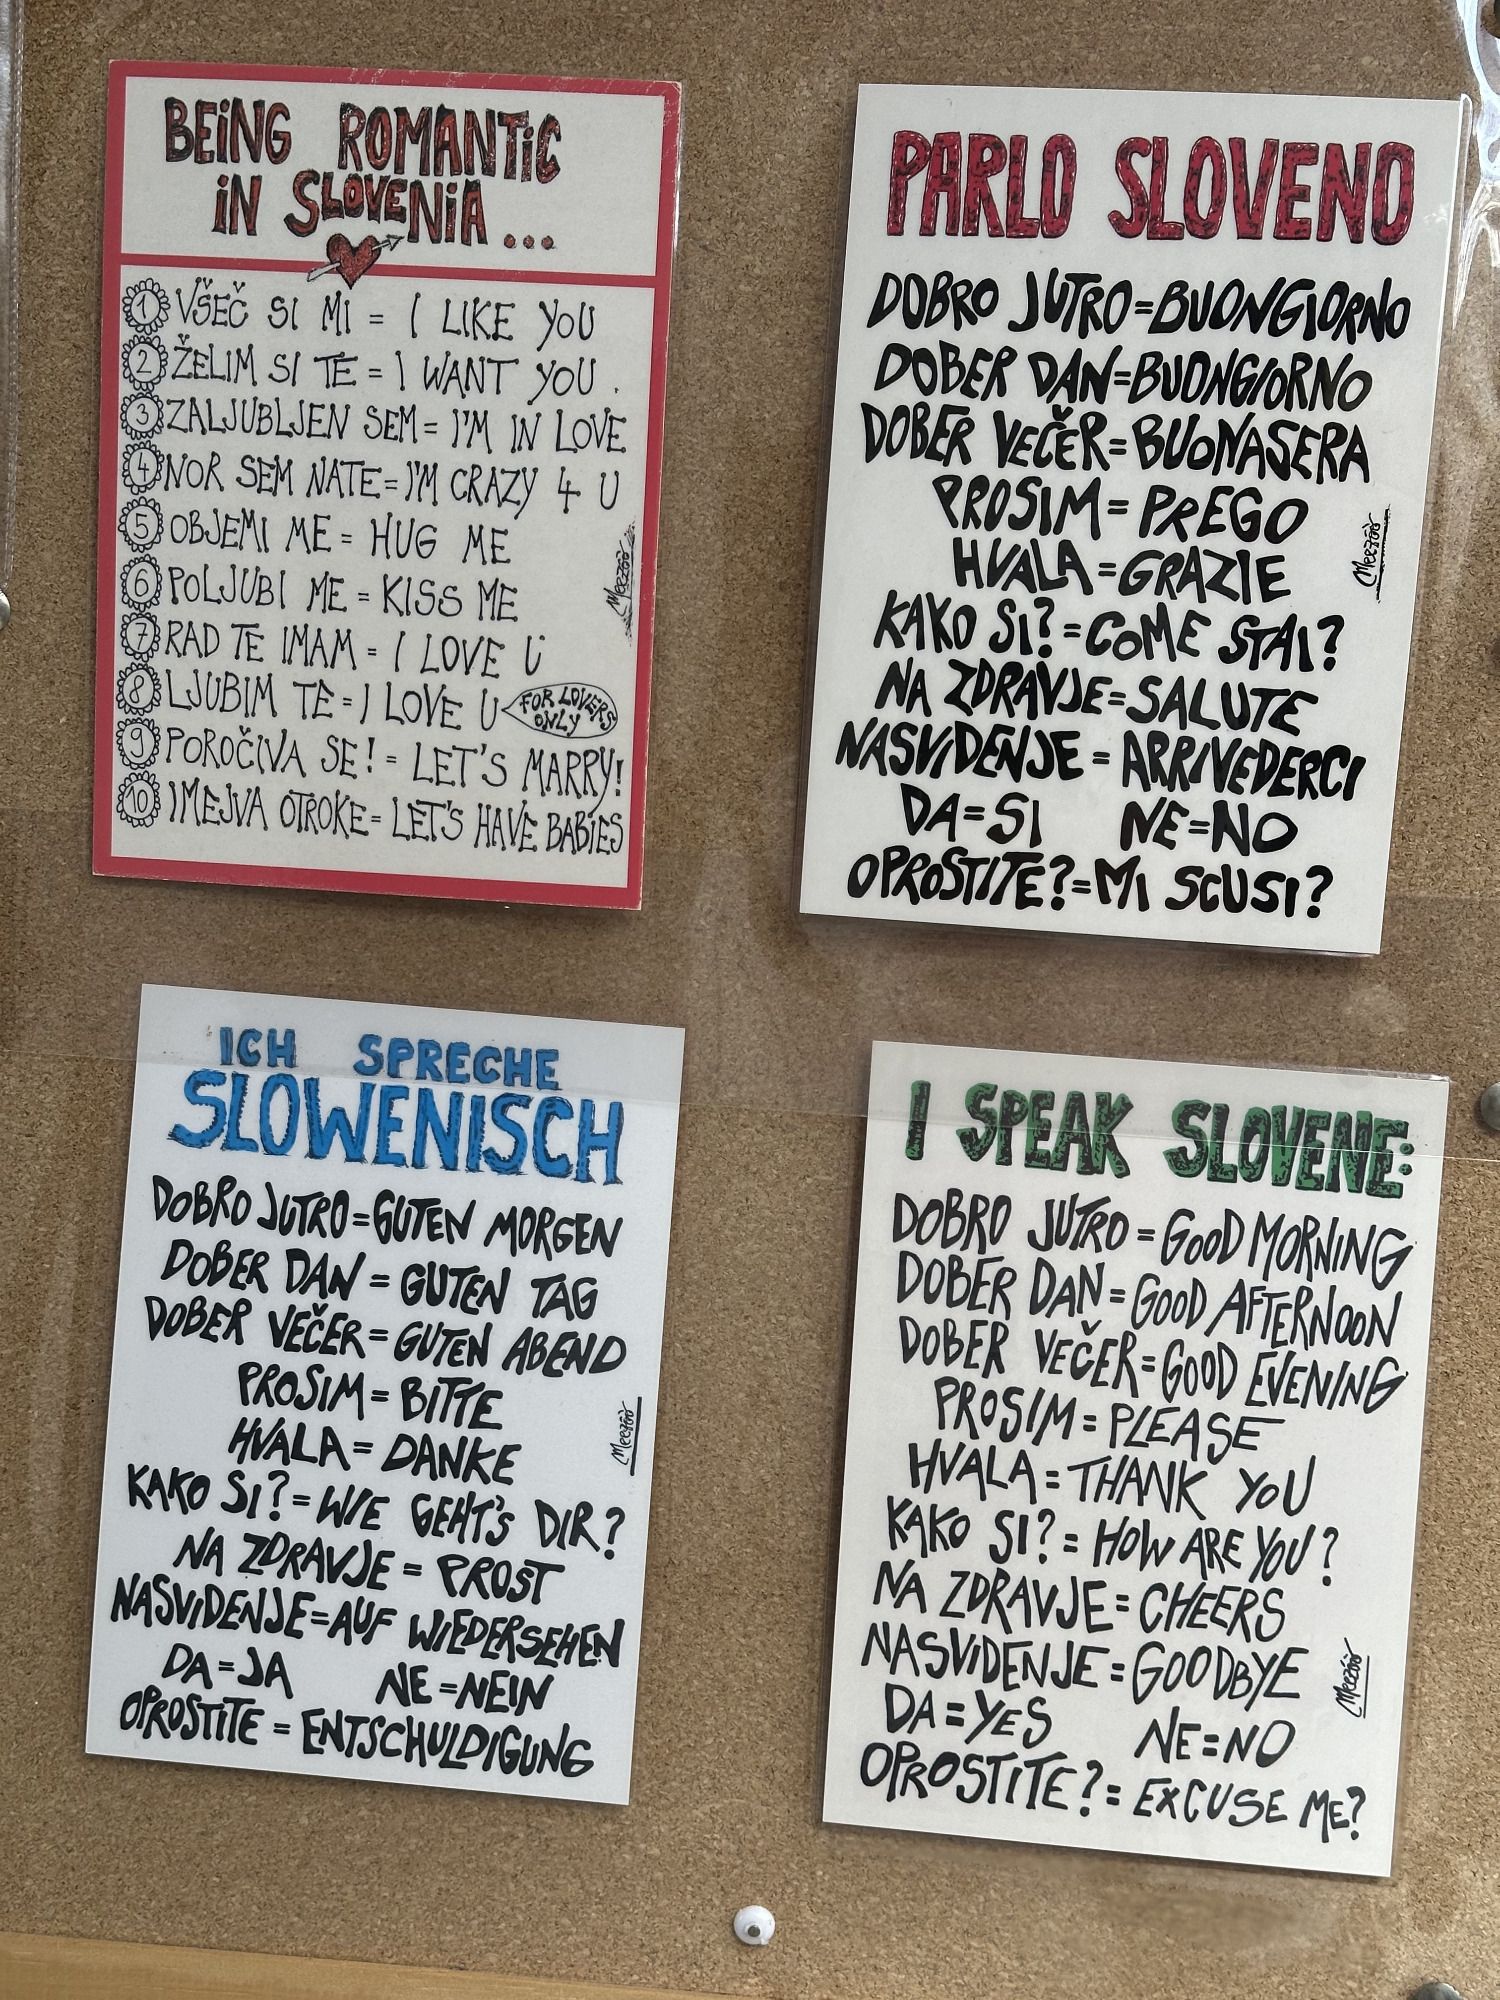 BEING ROMANTIC
IN SLOVENIA...
1 VŠEČ SI MI = I LIKE YOU
2 ŽELIM SI TE = I WANT YOU.
3 ZALJUBLJEN SEM = I'M IN LOVE
4 NOR SEM NATE = I'M CRAZY 4 U
5 OBJEMI ME = HUG ME
6 POLJUBI ME = KISS ME
7 RAD TE IMAM = I LOVE U
8 LJUBIM TE = I LOVE U FOR LOVERS
ONLY
9 POROČIVA SE! = LET'S MARRY!
10 IMEJVA OTROKE = LET'S HAVE BABIES
PARLO SLOVENO
DOBRO JUTRO = BUONGIORNO
DOBER DAN = BUONGIORNO
DOBER VEČER = BUONASERA
PROSIM = PREGO
HVALA = GRAZIE
KAKO SI? = COME STAI?
NA ZDRAVJE = SALUTE
NASVIDENJE = ARRIVEDERCI
DA = SI NE = NO
OPROSTITE? = MI SCUSI?
ICH SPRECHE
SLOWENISCH
DOBRO JUTRO = GUTEN MORGEN
DOBER DAN = GUTEN TAG
DOBER VEČER = GUTEN ABEND
PROSIM = BITTE
HVALA = DANKE
KAKO SI? = WIE GEHT'S DIR?
NA ZDRAVJE = PROST
NASVIDENJE = AUF WIEDERSEHEN
DA = JA NE = NEIN
OPROSTITE = ENTSCHULDIGUNG
I SPEAK SLOVENE:
DOBRO JUTRO = GOOD MORNING
DOBER DAN = GOOD AFTERNOON
DOBER VEČER = GOOD EVENING
PROSIM = PLEASE
HVALA = THANK YOU
KAKO SI? = HOW ARE YOU?
NA ZDRAVJE = CHEERS
NASVIDENJE = GOODBYE
DA = YES NE = NO
OPROSTITE? = EXCUSE ME?